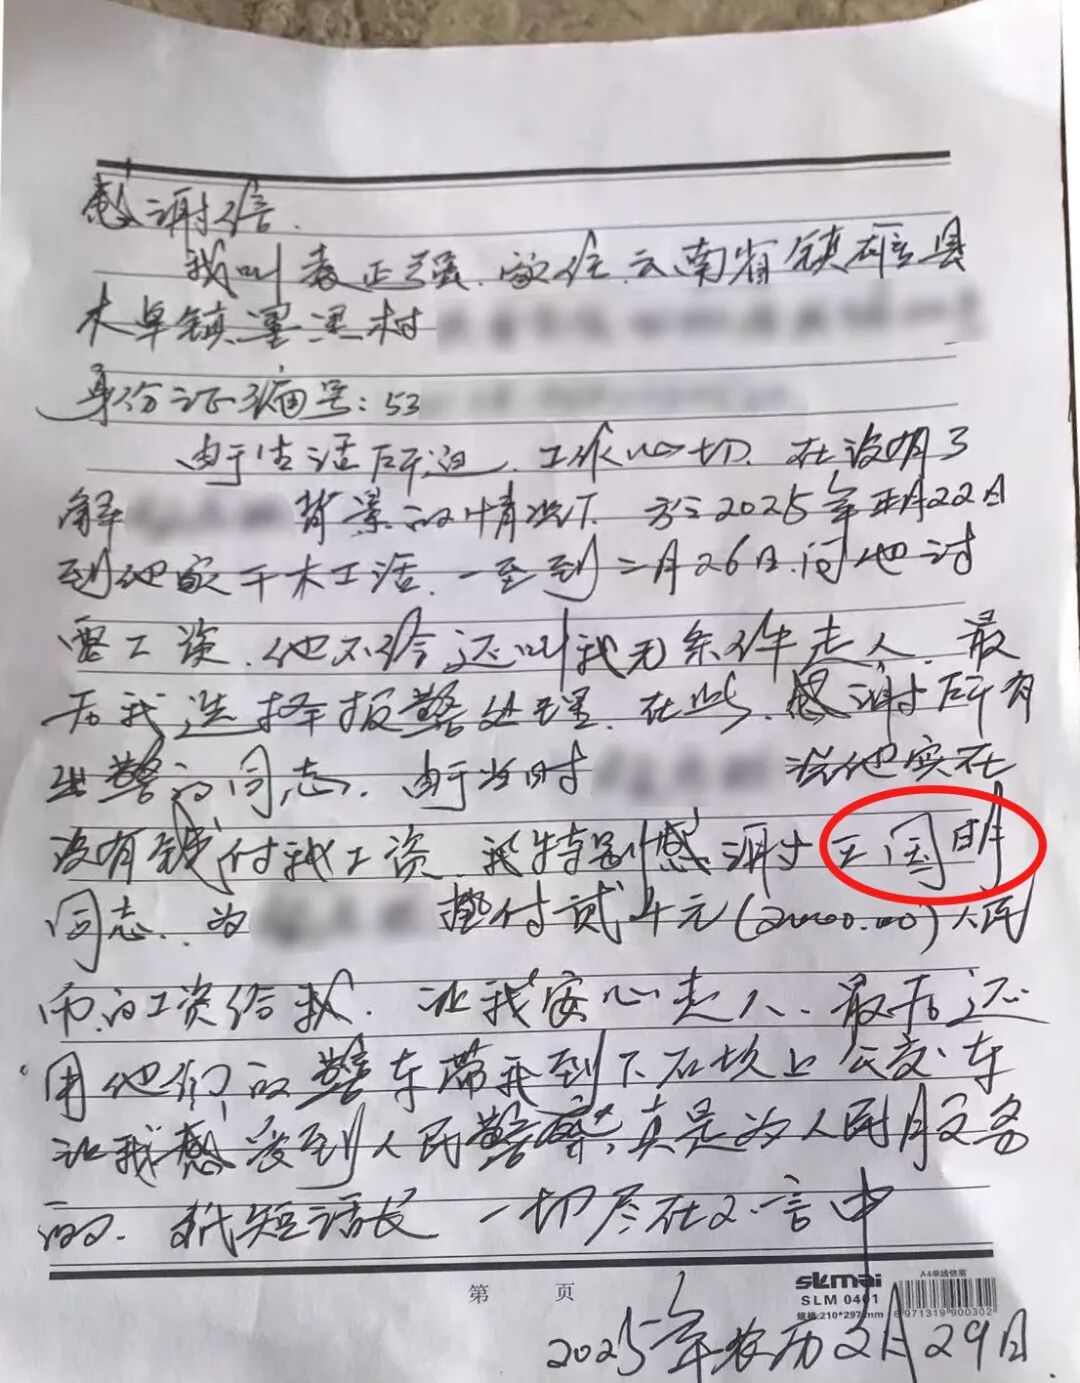 感谢信.
我叫袁正强.家住云南省镇雄县
木卓镇墨黑村
身份证编号:53
由于生活所迫.工作心切.在没明了
解 背景的情况下.於2025年正月22日
到他家干木工活.一至到二月26日.问他讨
要工资.他不给还叫我无条件走人.最
后我选择报警处理.在此.感谢所有
出警的同志.由于当时 说他实在
没有钱付我工资.我特别感谢王国明
同志..为 垫付贰千元(2000.00)人民
币的工资给我.让我安心走人.最后还
用他们的警车带我到下石坎上公交车
让我感受到人民警察,真是为人民服务
的.纸短话长 一切尽在不言中
第 页
skmai
SLM 0401
A4单线信笺
规格:210*297mm
6971319900302
2025年农历2月29日